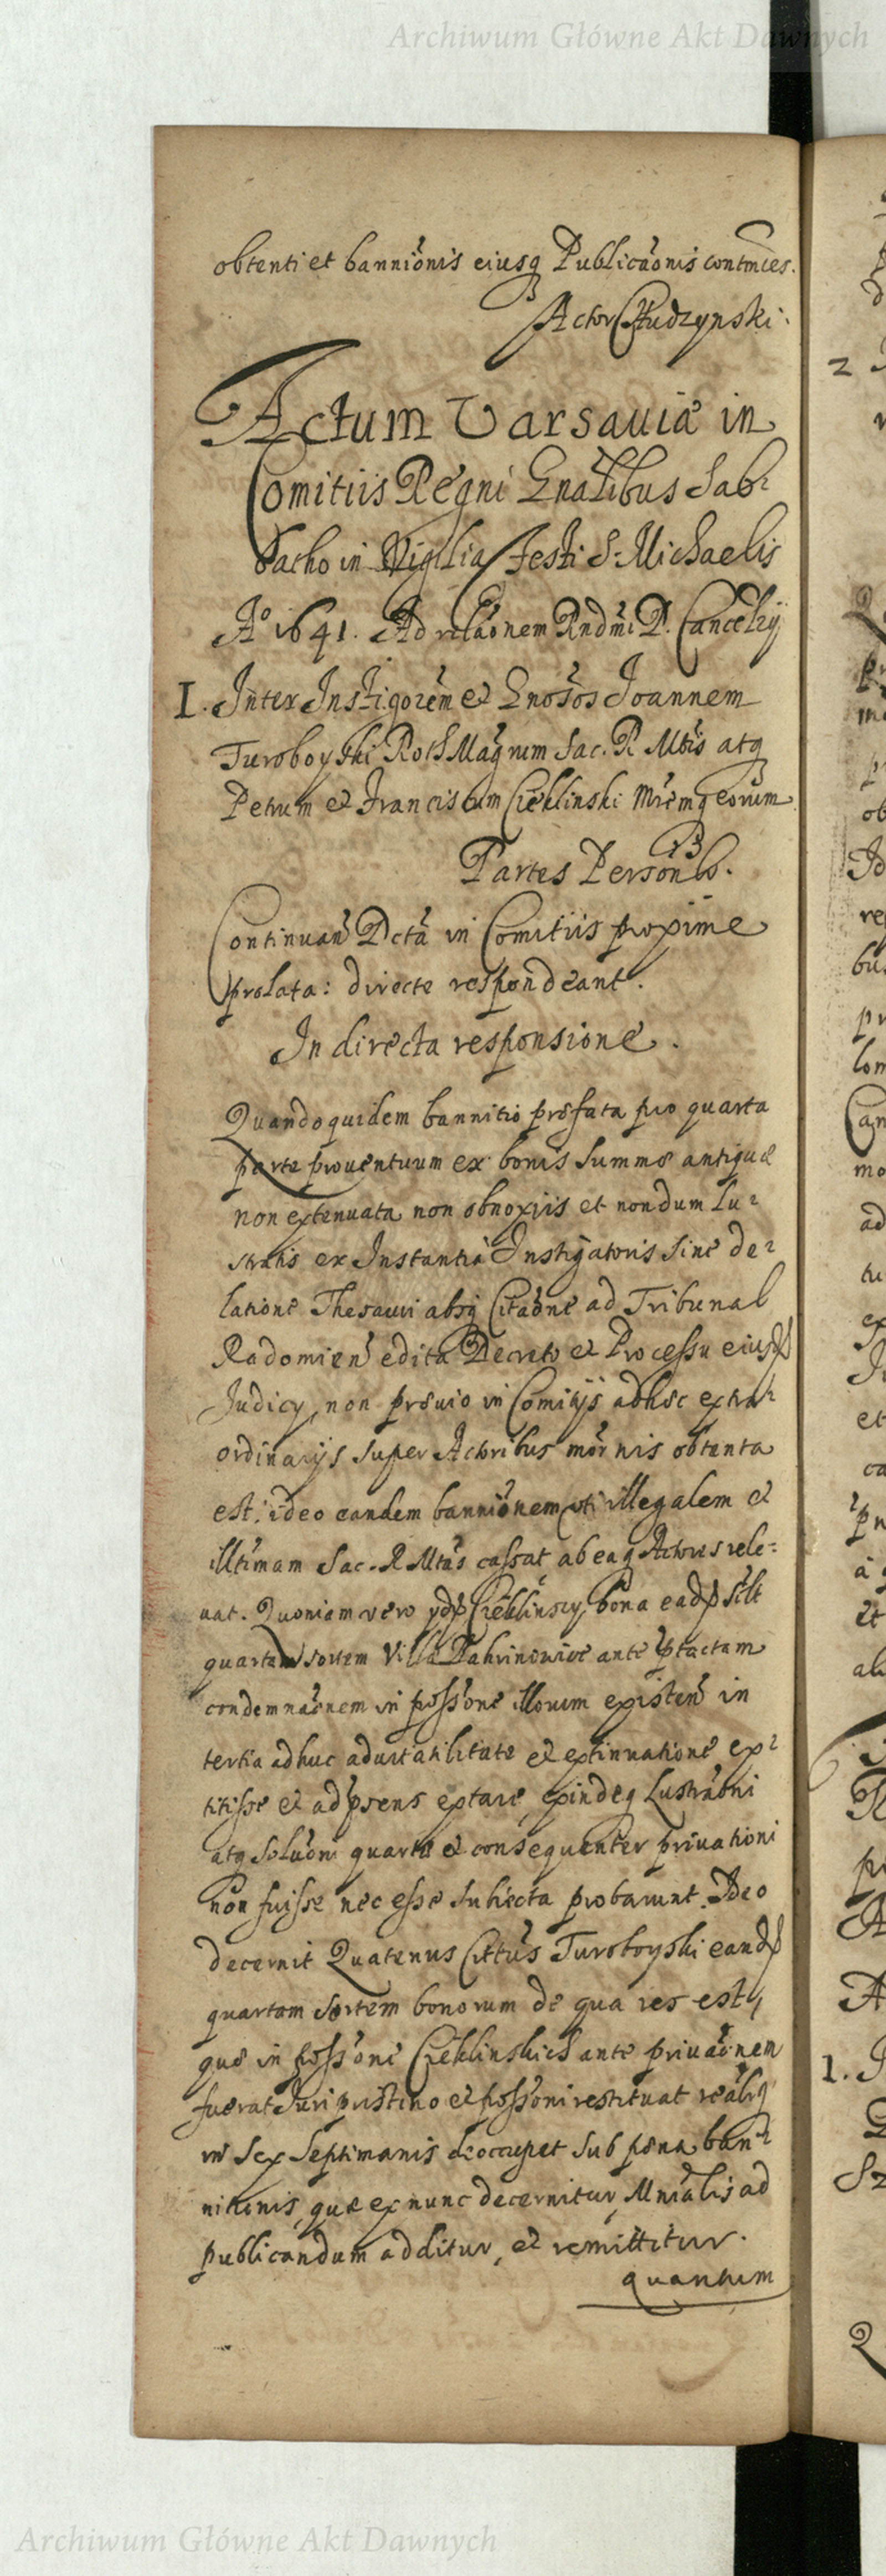 Archiwum Główne Akt Dawnych
obtenti et bannionis eiusq Publicaonis contmces.
Actor Chudzynski.
Actum Varsaviæ in
Comitiis Regni Gnalibus Sab-
batho in Vigilia Festi S. Michaelis
Aº 1641. Ad relaonem Rndmi D. Cancellrij
I. Inter Instigorem et Gnosos Joannem
Turoboyski RothMagrum Sac. R. Mtis atq
Petrum et Franciscum Cieklinski Mremq eorum
Partes Personlr.
Continuan Dcta in Comitiis proxime
prolata: directe respondeant.
In directa responsione.
Quandoquidem bannitio præfata pro quarta
parte proventuum ex bonis summæ antiquæ
non extenuata non obnoxijs et nondum lu-
stratis ex Instantia Instigatoris sine de-
latione Thesauri absq Citaone ad Tribunal
Radomien edita Decreto et Processu eiusd
Judicij non prævio in Comitijs adhec extra-
ordinarijs super Actoribus mornis obtenta
est: ideo eandem bannionem uti illegalem et
illtimam Sac. R Mtas cassat ab eaq Actores rele-
uat. Quoniam vero yd Cieklinscy bona ead sclt
quartam sortem Villæ ante ptactam
condemnaonem in possone illorum existen in
tertia adhuc et extinuatione ex-
titisse et ad præsens extare, exindeq Lustraoni
atq Soluoni quartæ et consequenter privationi
non fuisse nec esse subiecta probarunt. Ideo
decernit Quatenus Cittus Turoboyski eand
quartam sortem bonorum de qua res est,
quæ in possone Cieklinskich ante privaonem
fuerat Juri pristino et possoni restituat realrq
in sex septimanis deoccupet sub pæna ban-
nitionis, quæ ex nunc decernitur, Mnialis ad
publicandum additur, et remittitur.
quantum
2
1.
Archiwum Główne Akt Dawnych